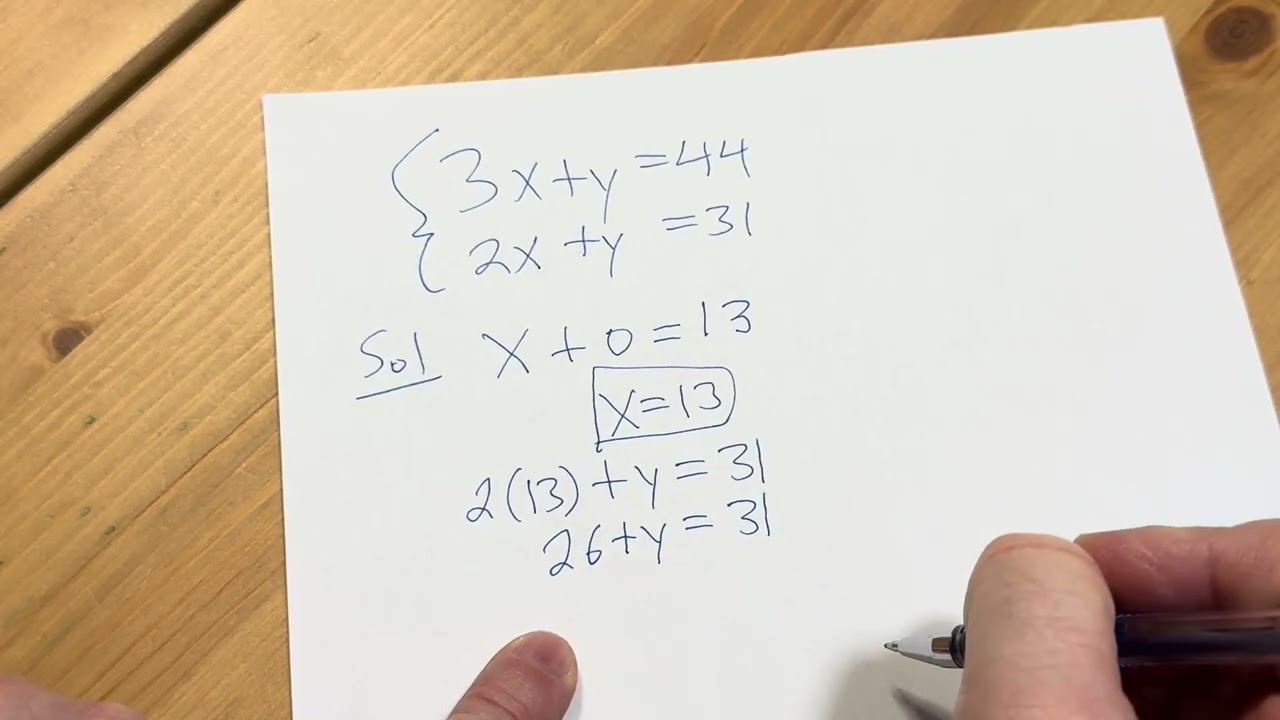 3x+y=44
2x+y=31
Sol x+0=13
x=13
2(13)+y=31
26+y=31